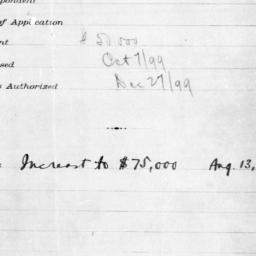 pondent
of Application
nt $ 50,000
sed Oct 7/99
s Authorized Dec 27/99
Increast to $75,000 Aug. 13,